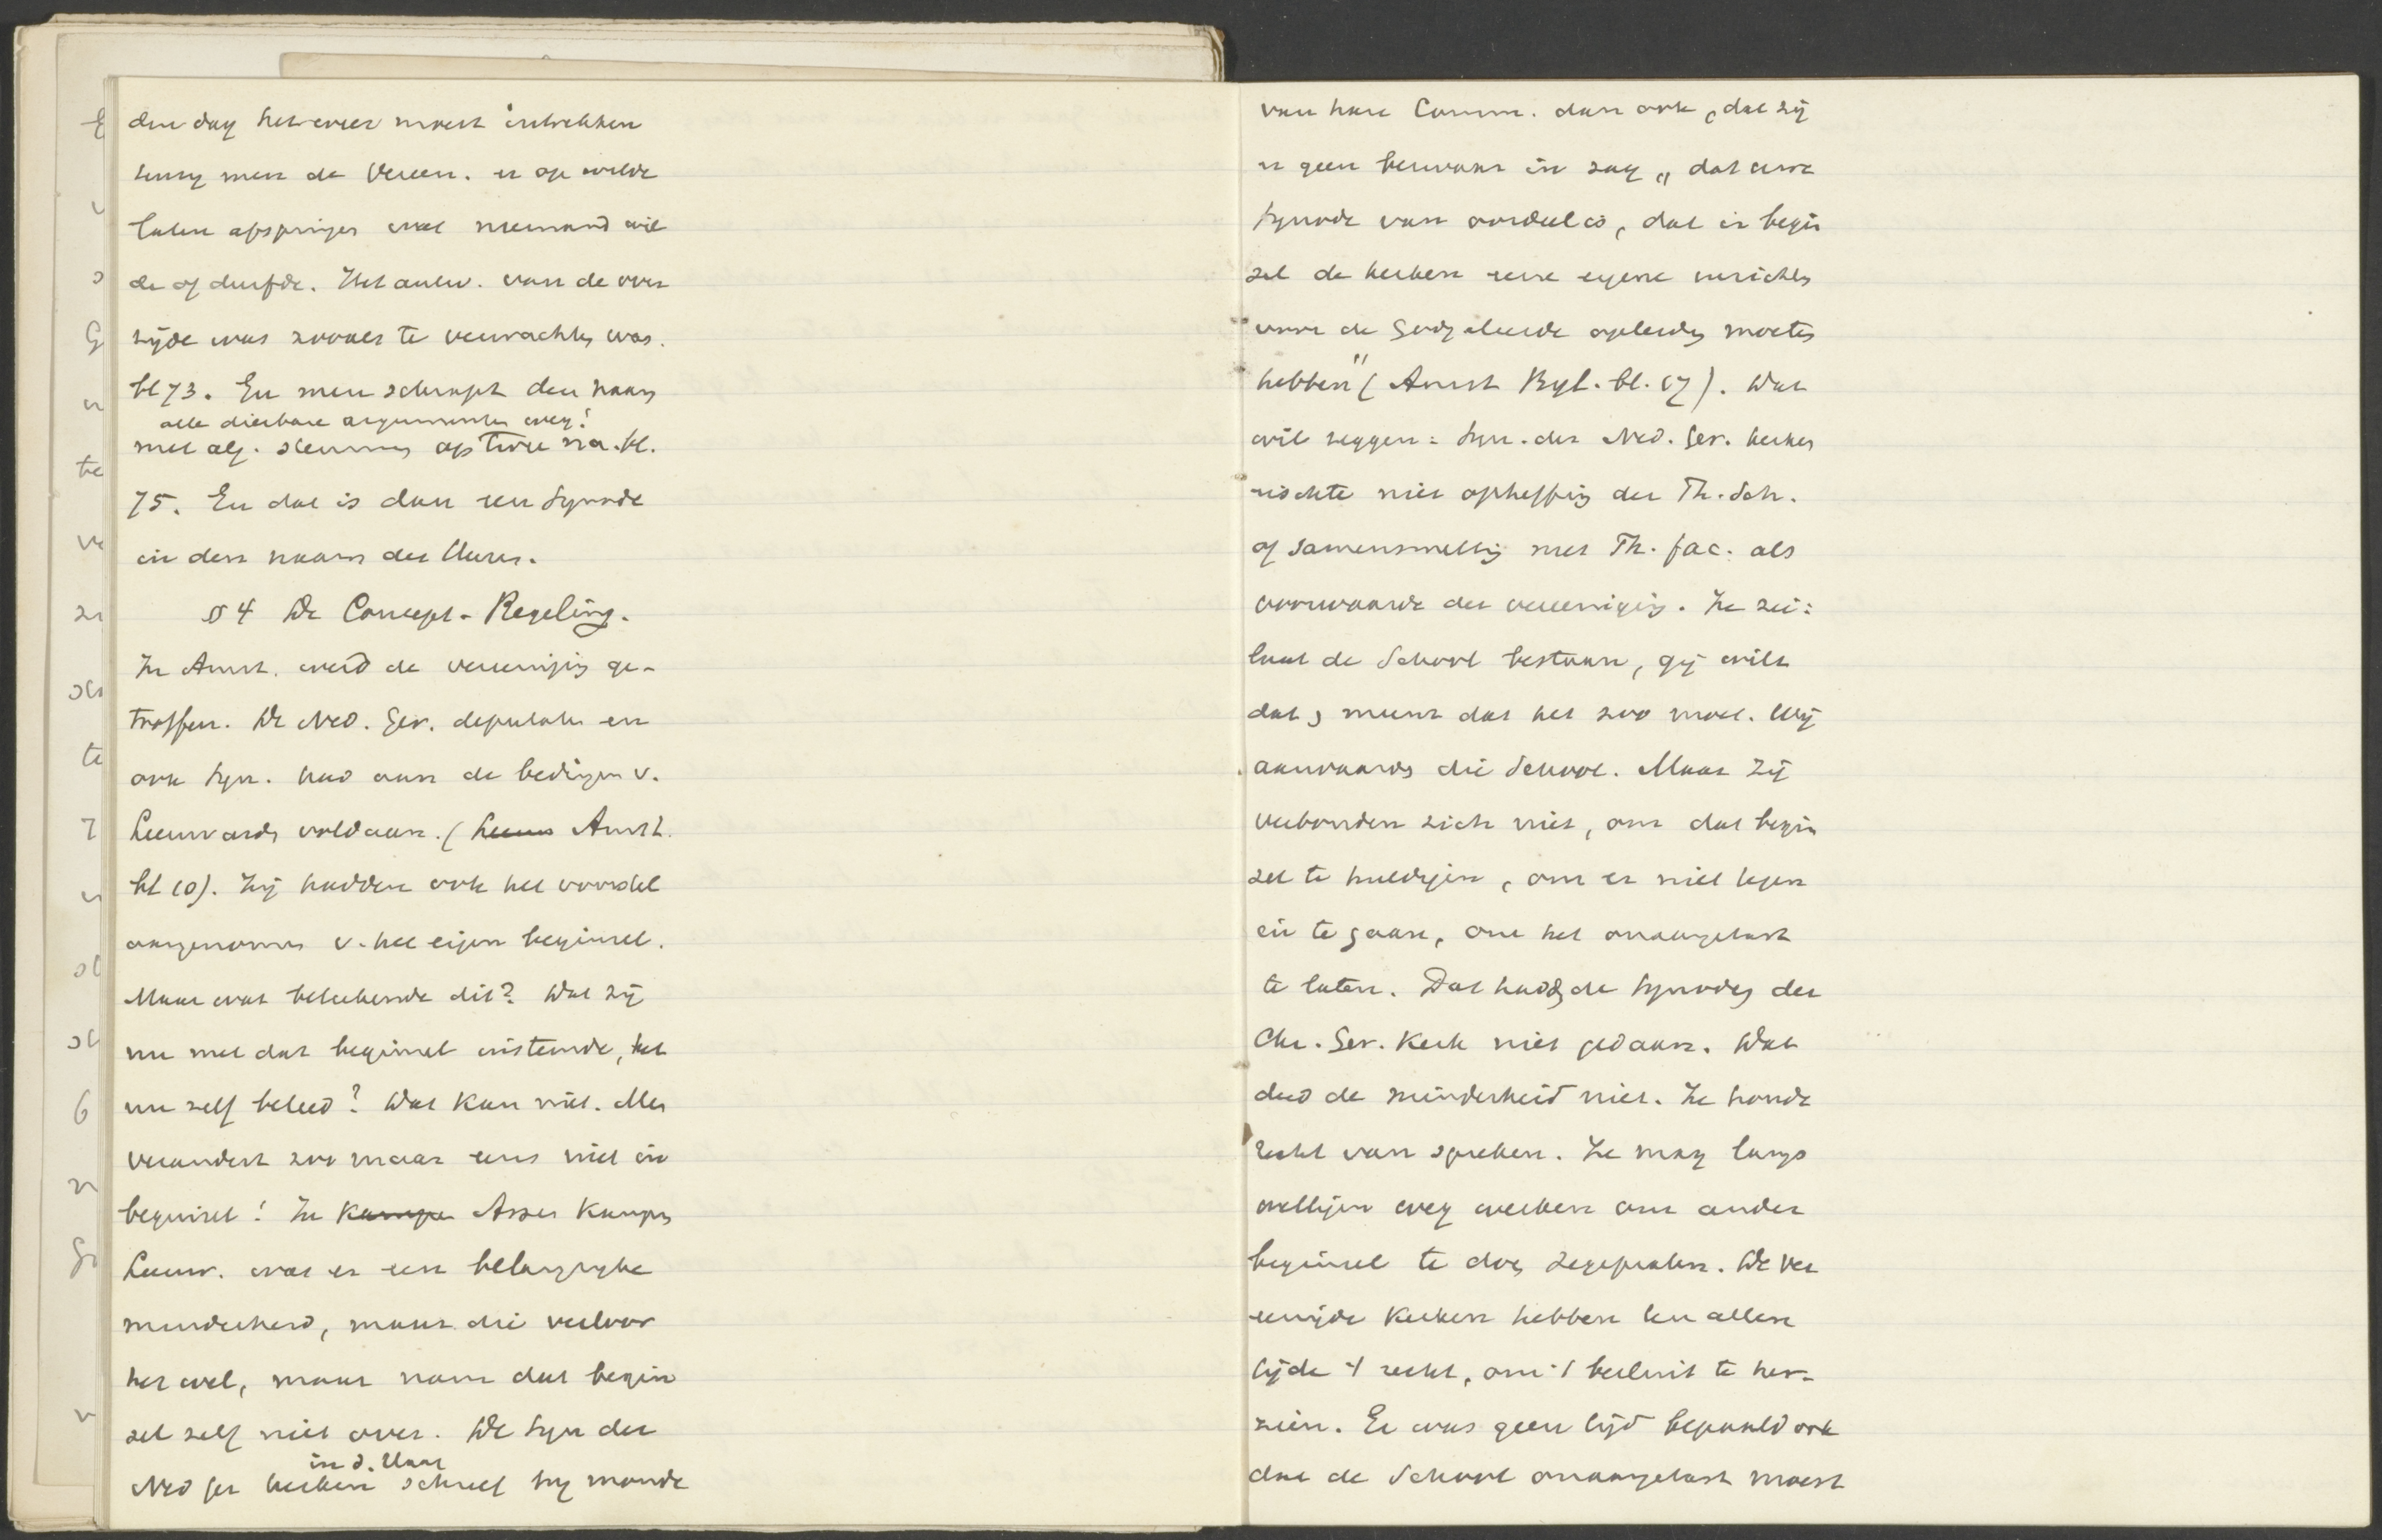 den dag het weer moest intrekken
tenzij men de Vereen. er op wilde
laten afspringen wat niemand wil
de of durfde. Het antw. van de over
zijde was zooals te verwachten was.
bl 73. En men schrapt den naam
alle dierbare argumenten weg!
met alg. stemmen op twee na. bl.
75. En dat is dan een Synode
in den naam des Heeren.
§ 4 De Concept-Regeling.
In Amst. werd de vereeniging ge-
troffen. De Ned. Ger. deputaten en
ook Syn. had aan de bedingen v.
Leeuwarden voldaan. ( Amst.
bl 10). Zij hadden ook het voorstel
aangenomen v. het eigen beginsel.
Maar wat beteekende dit? Dat zij
nu met dat beginsel instemde, het
nu zelf beleed? Dat kan niet. Men
verandert zoo maar eens niet in
beginsel! In Kampen Assen Kampen
Leeuw. was er een belangrijke
minderheid, maar die verloor
het wel, maar nam dat begin
sel zelf niet over. De Syn der
in d. Haag
Ned Ger kerken schreef bij monde
van hare Comm. dan ook, dat zij
er geen bezwaar in zag „dat uwe
Synode van oordeel is, dat in begin
sel de kerken eene eigene inrichting
voor de Godgeleerde opleiding moeten
hebben" (Amst Byl. bl. 17). Dat
wil zeggen: Syn. der Ned. Ger. kerken
eischte niet opheffing der Th. Sch.
of samensmelting met Th. fac. als
voorwaarde der vereeniging. Ze zei:
laat de School bestaan, gij wilt
dat, meent dat het zoo moet. Wij
aanvaarden die School. Maar zij
verbonden zich niet, om dat begin
sel te huldigen, om er niet tegen
in te gaan, om het onaangetast
te laten. Dat hadden de Synoden der
Chr. Ger. Kerk niet gedaan. Dat
deed de minderheid niet. Ze houdt
recht van spreken. Ze mag langs
wettigen weg werken om ander
beginsel te doen zegepralen. De ver
eenigde Kerken hebben ten allen
tijde 't recht, om 't besluit te her-
zien. Er was geen tijd bepaald ook
dat de School onaangetast moest